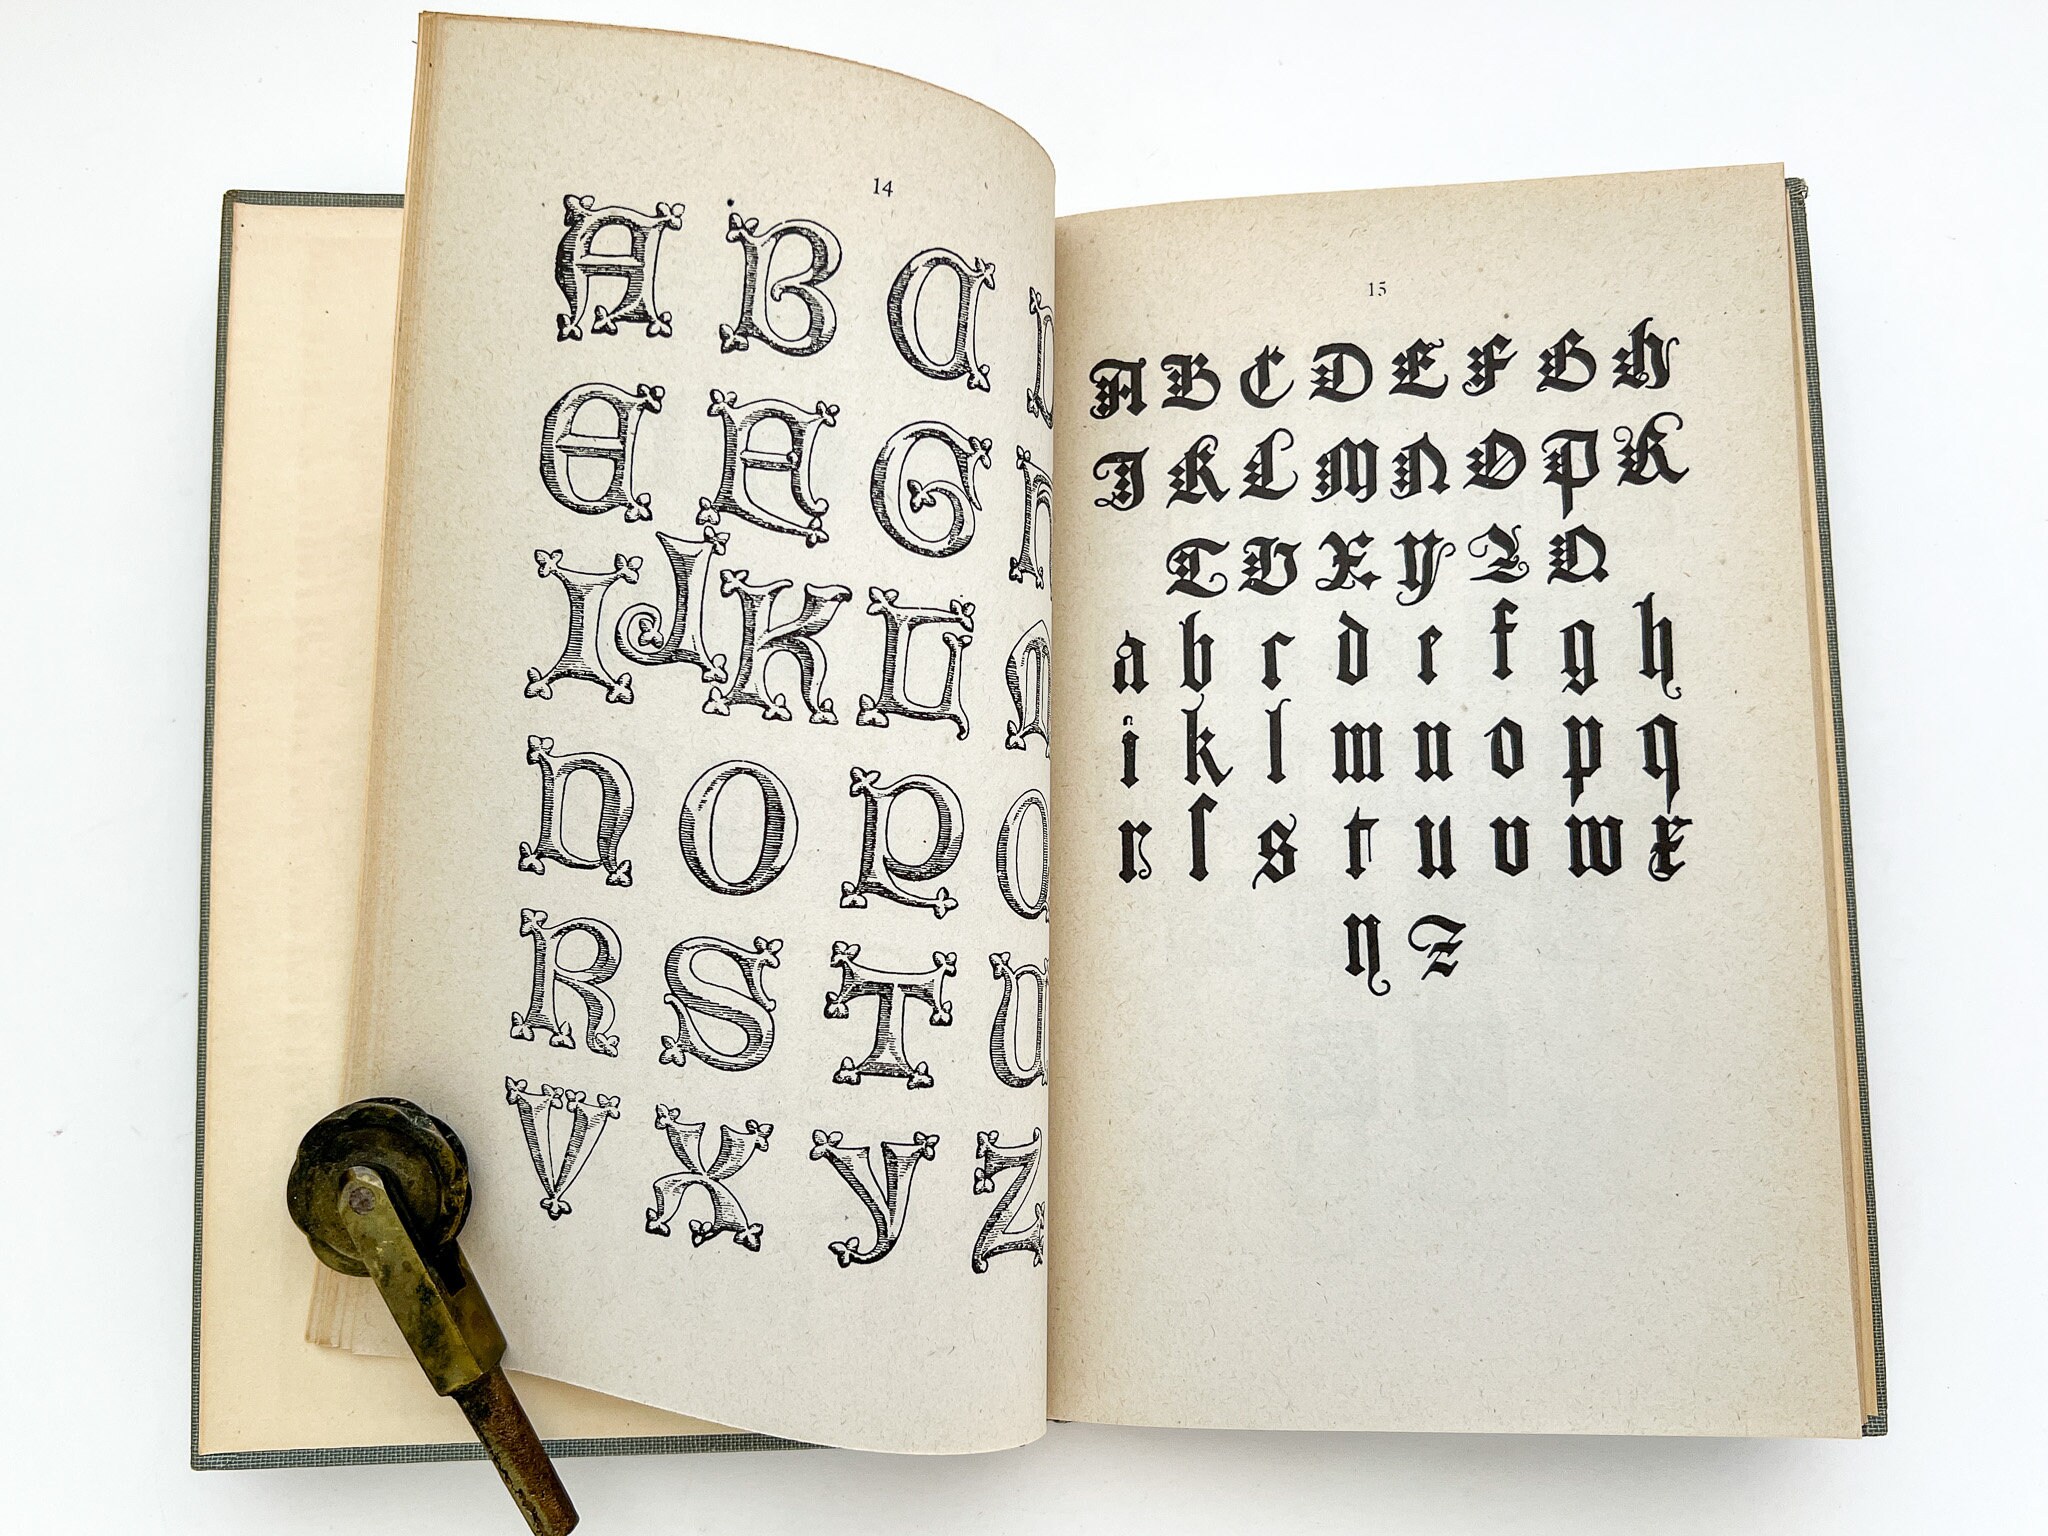 14
A B C
E F G
I J K L
N O P
R S T U
V X Y Z
15
A B C D E F G H
I K L M N O P R
T V X Y Z Q
a b c d e f g h
i k l m n o p q
r ſ s t u v w x
y z